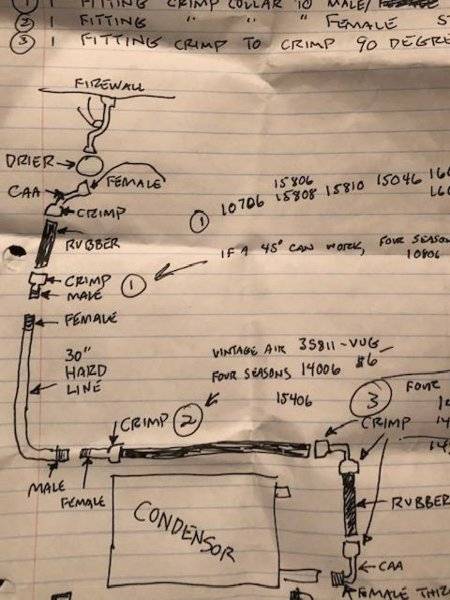 ① 1 FITTING CRIMP COLLAR TO MALE/
② 1 FITTING " " " FEMALE ST
③ 1 FITTING CRIMP TO CRIMP 90 DEGRE
FIREWALL
DRIER
FEMALE
CAA
CRIMP
RUBBER
① 10706 15806 15808 15810 15046
IF A 45° CAN WORK, FOUR SEASON
10806
CRIMP
MALE ①
FEMALE
30"
HARD
LINE
VINTAGE AIR 35811-VUG
FOUR SEASONS 14006 #6
15406
CRIMP ②
③ FOUR
CRIMP
MALE
FEMALE
RUBBER
CONDENSOR
CAA
FEMALE THI